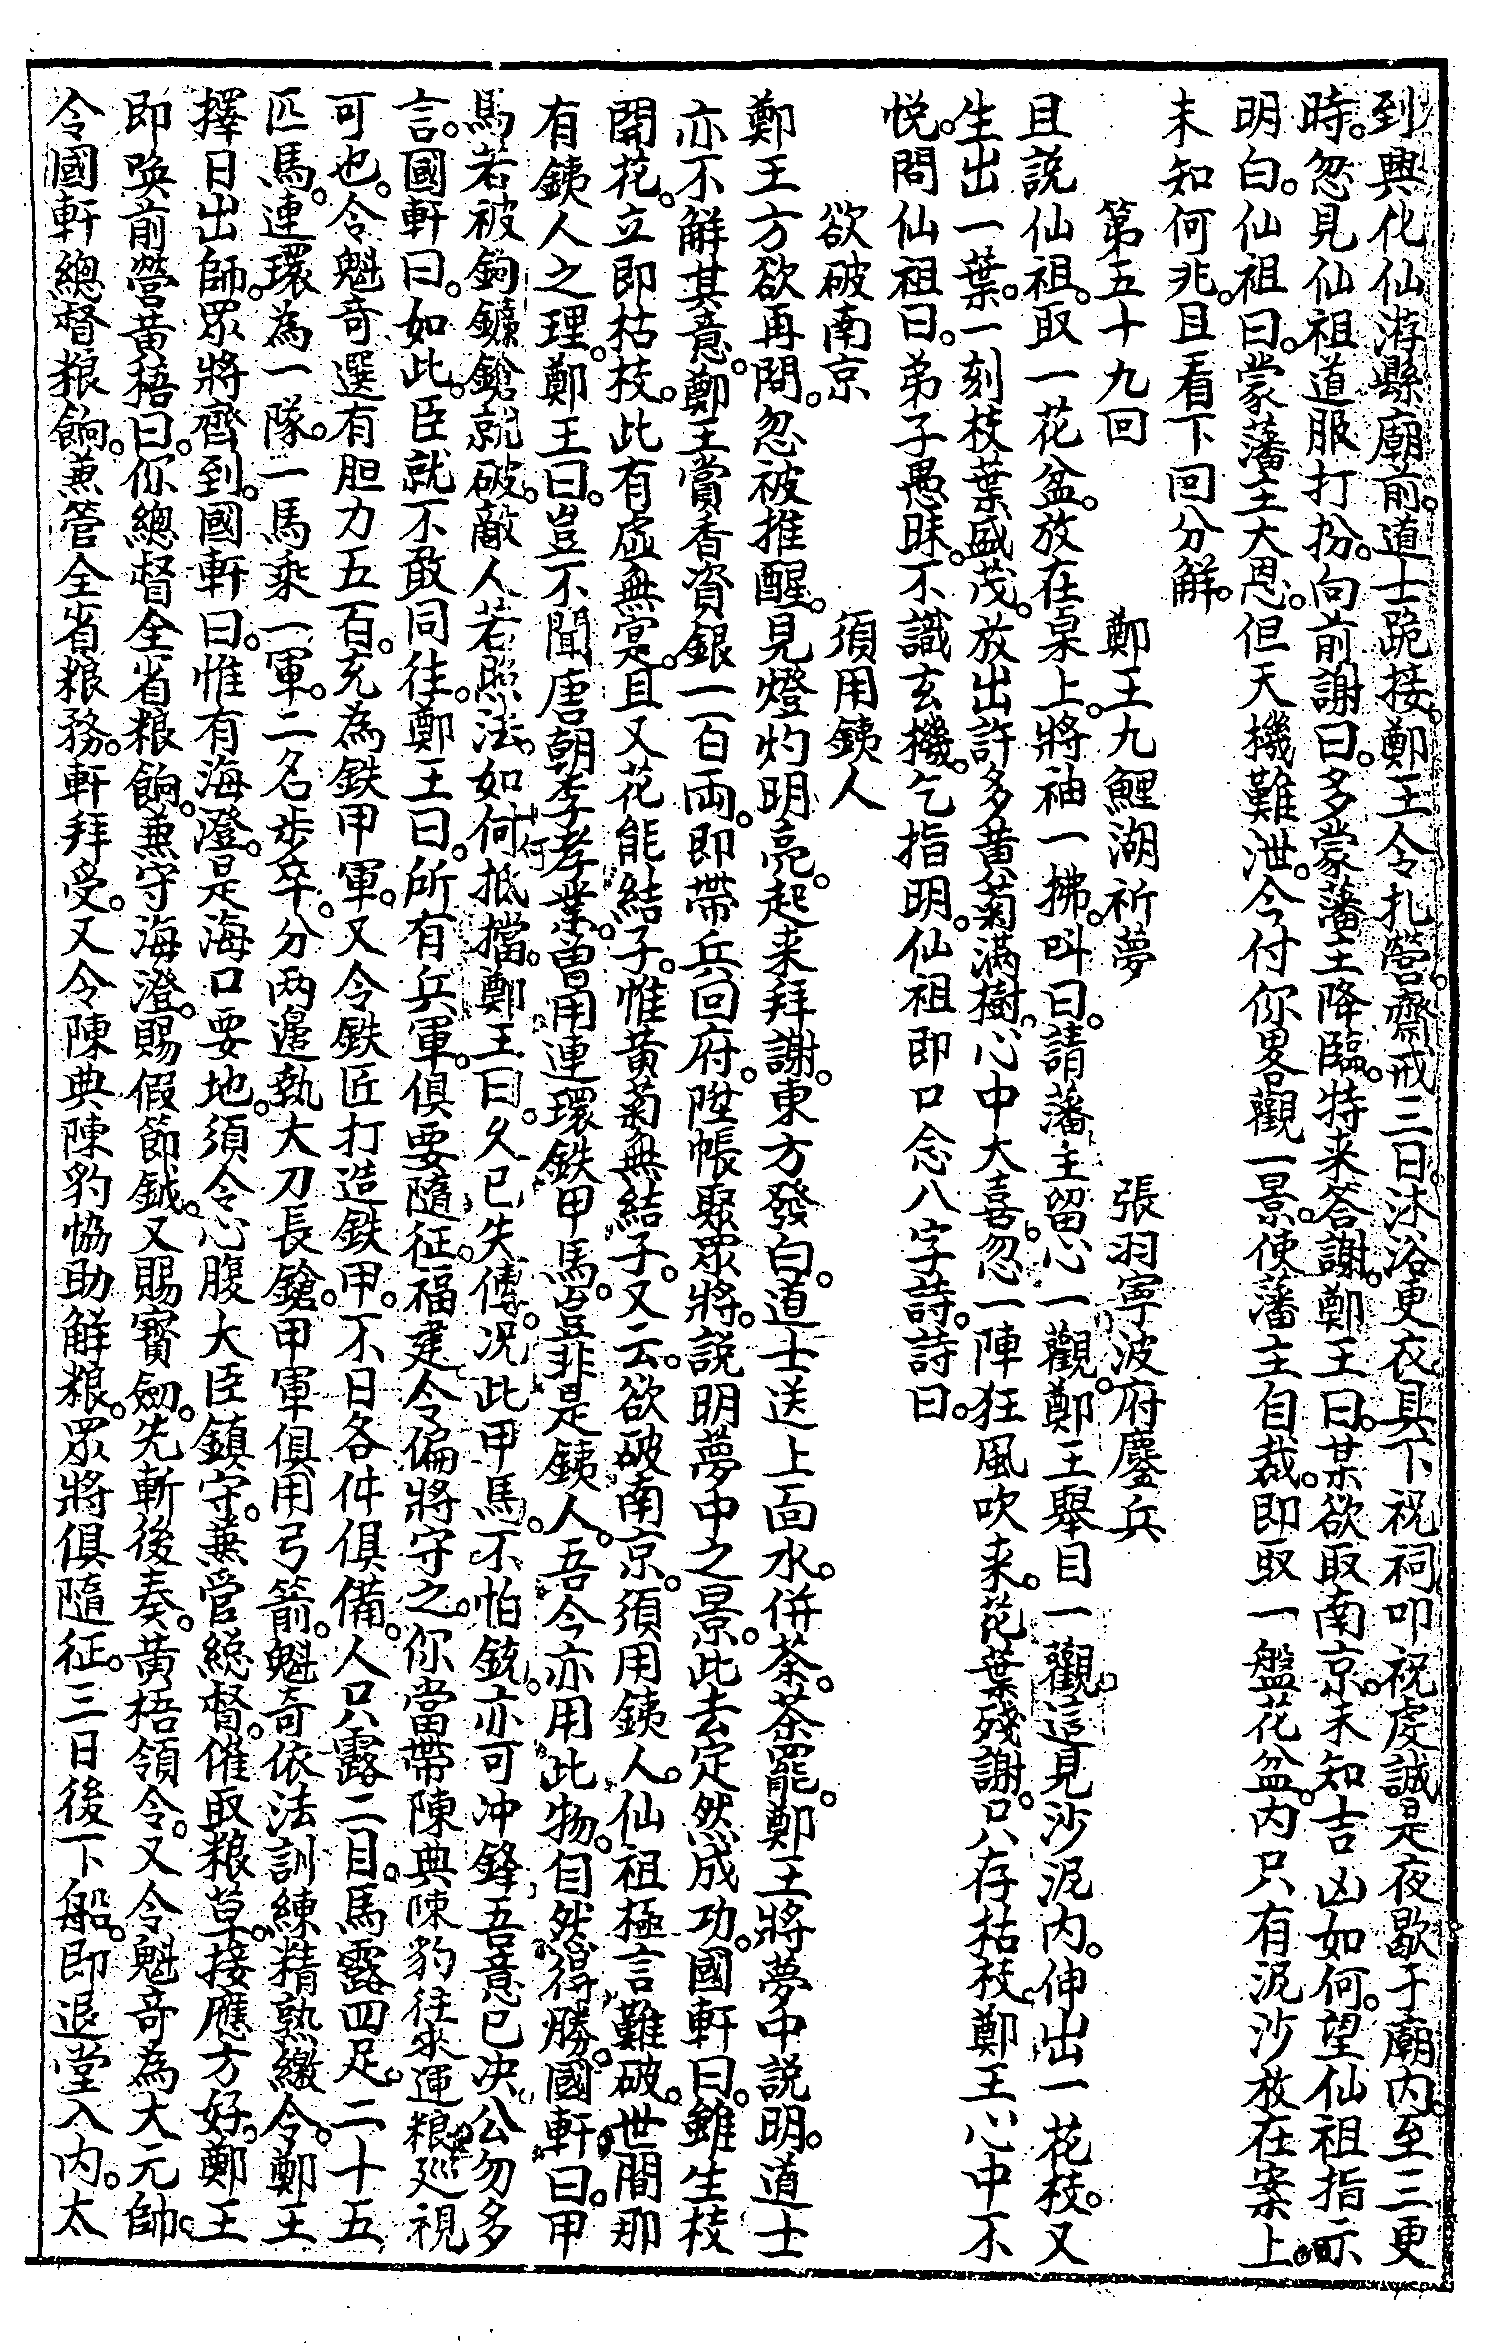 到興化仙游縣廟前。道士跪接。鄭王令扎營。齋戒三日。沐浴更衣。具下祝祠叩祝。虔誠。是夜歇于廟內。至三更
時。忽見仙祖道服打扮。向前謝曰。多蒙藩主降臨。特来答謝。鄭王曰。某欲取南京。未知吉凶如何。望仙祖指示
明白。仙祖曰。蒙藩主大恩。但天機難泄。今付你畧觀一景。使藩主自裁。即取一盤花盆。內只有泥沙。放在案上。
未知何兆。且看下回分觧。
第五十九回　鄭王九鯉湖祈夢　張羽寧波府鏖兵
且説仙祖。取一花盆。放在桌上。將袖一拂。叫曰。請藩主留心一觀。鄭王舉目一觀。這見沙泥內。伸出一花枝。又
生出一葉。一刻枝葉盛茂。放出許多黄菊滿樹。心中大喜。忽一陣狂風吹来。花葉殘謝。只存枯枝。鄭王心中不
悦。問仙祖曰。弟子愚昧。不識玄機。乞指明。仙祖即口念八字詩。詩曰。
欲破南京　須用銕人
鄭王方欲再問。忽被推醒。見燈灼明亮。起来拜謝。東方發白。道士送上面水。併茶。茶罷。鄭王將夢中説明。道士
亦不觧其意。鄭王賞香資銀一百両。即帶兵回府。陞帳聚眾將。説明夢中之景。此去定然成功。國軒曰。雖生枝
開花。立即枯枝。此有虛無寔。且又花能結子。惟黄菊無結子。又云。欲破南京。須用銕人。仙祖極言難破。世間那
有銕人之理。鄭王曰。豈不聞唐朝李孝業。曾用連環鉄甲馬。豈非是銕人。吾今亦用此物。自然得勝。國軒曰。甲
馬若被鉤鐮鎗就破。敵人若照法。如何抵擋。鄭王曰。久已失傳。况此甲馬。不怕銃。亦可冲鋒。吾意已决。公勿多
言。國軒曰。如此。臣就不敢同往。鄭王曰。所有兵軍。俱要隨征。福建令偏將守之。你當帶陳典陳豹往來運粮廵視
可也。令魁奇選有胆力五百。充為鉄甲軍。又令鉄匠打造鉄甲。不日各件俱備。人只露二目。馬露四足。二十五
匹馬。連環為一隊。一馬乘一軍。二名步卒。分两邊執大刀長鎗。甲軍俱用弓箭。魁奇依法訓練精熟繳令。鄭王
擇日出師。眾將齊到。國軒曰。惟有海澄。是海口要地。須令心腹大臣鎮守。兼管總督。催取粮草。接應方好。鄭王
即喚前營黄梧曰。你總督全省粮餉。兼守海澄。賜假節鉞。又賜寶劍。先斬後奏。黄梧領令。又令魁奇為大元帥。
令國軒總督粮餉。兼管全省粮務。軒拜受。又令陳典陳豹恊助觧粮。眾將俱隨征。三日後下船。即退堂入內。太